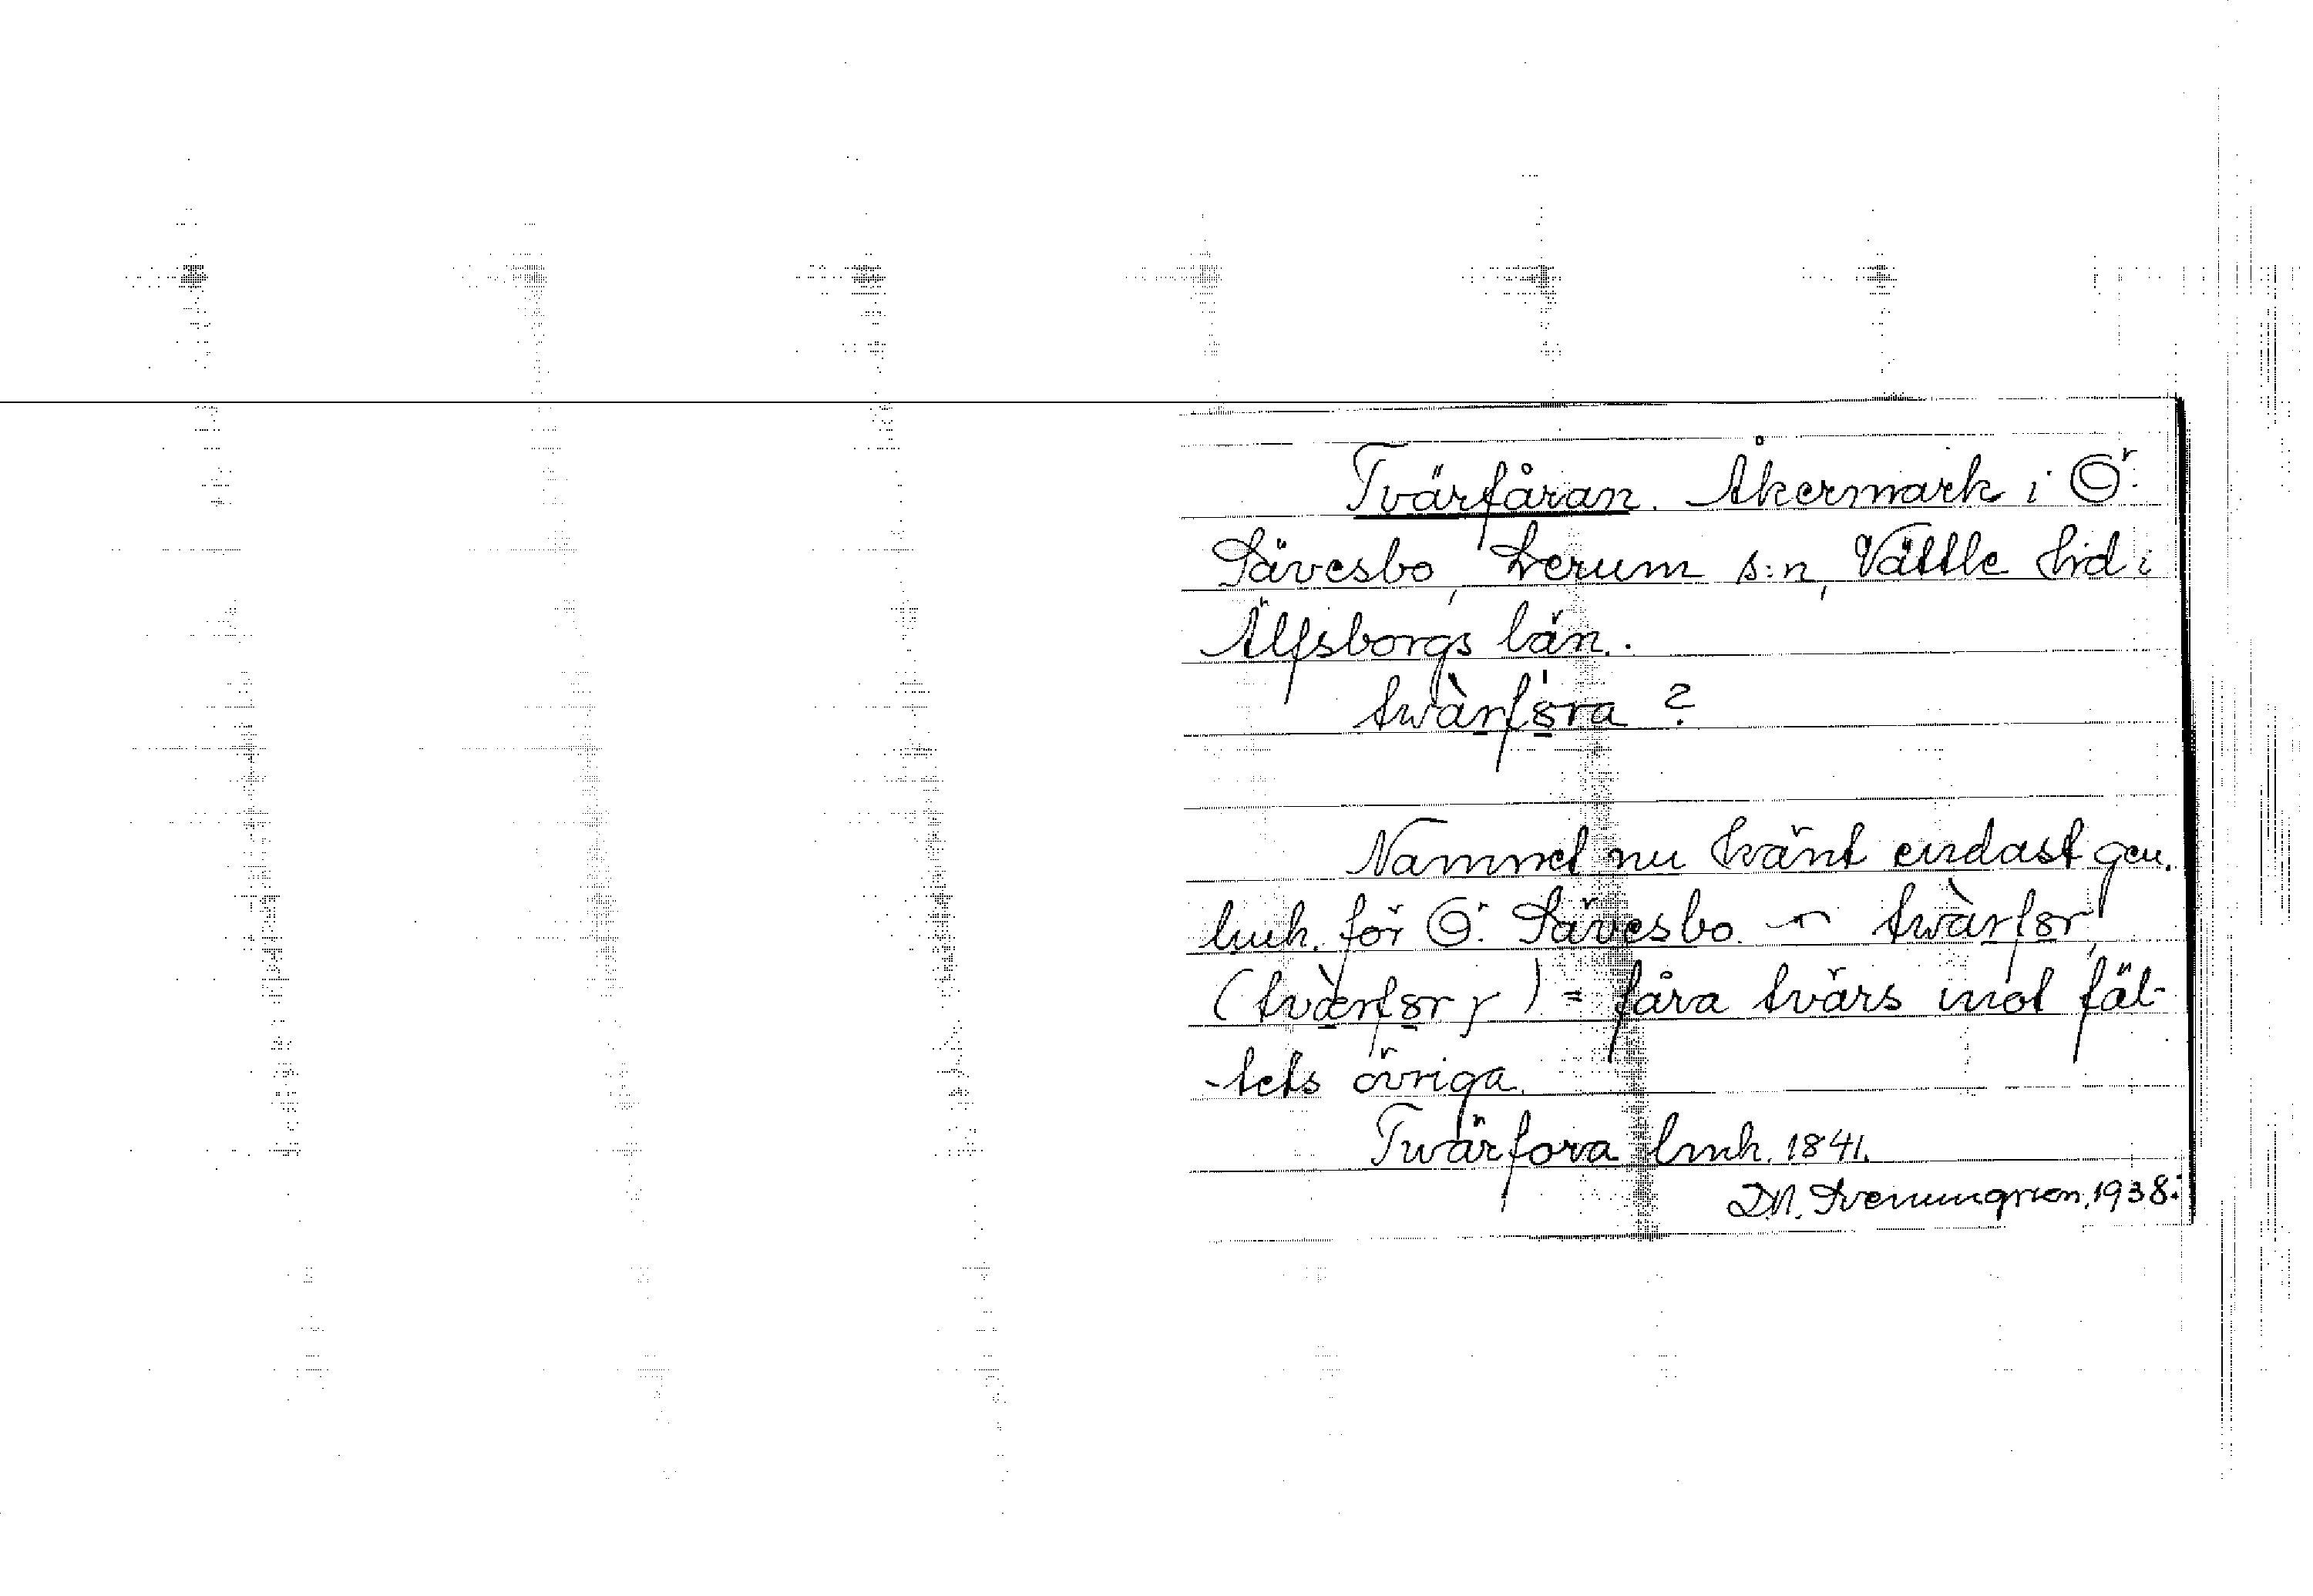 Tvärfåran. Åkermark i Ö.
Sävesbo, Lerum s:n, Vättle hd i
Älfsborgs län.
twàrfɵra ?
Namnet nu känt endast gen.
lmk. för Ö. Sävesbo. twàrfɵr
(tvàrfɵr r) = fåra tvärs mot fäl-
-tets övriga.
Twärfora lmk. 1841.
D.N. Svenungsson. 1938.